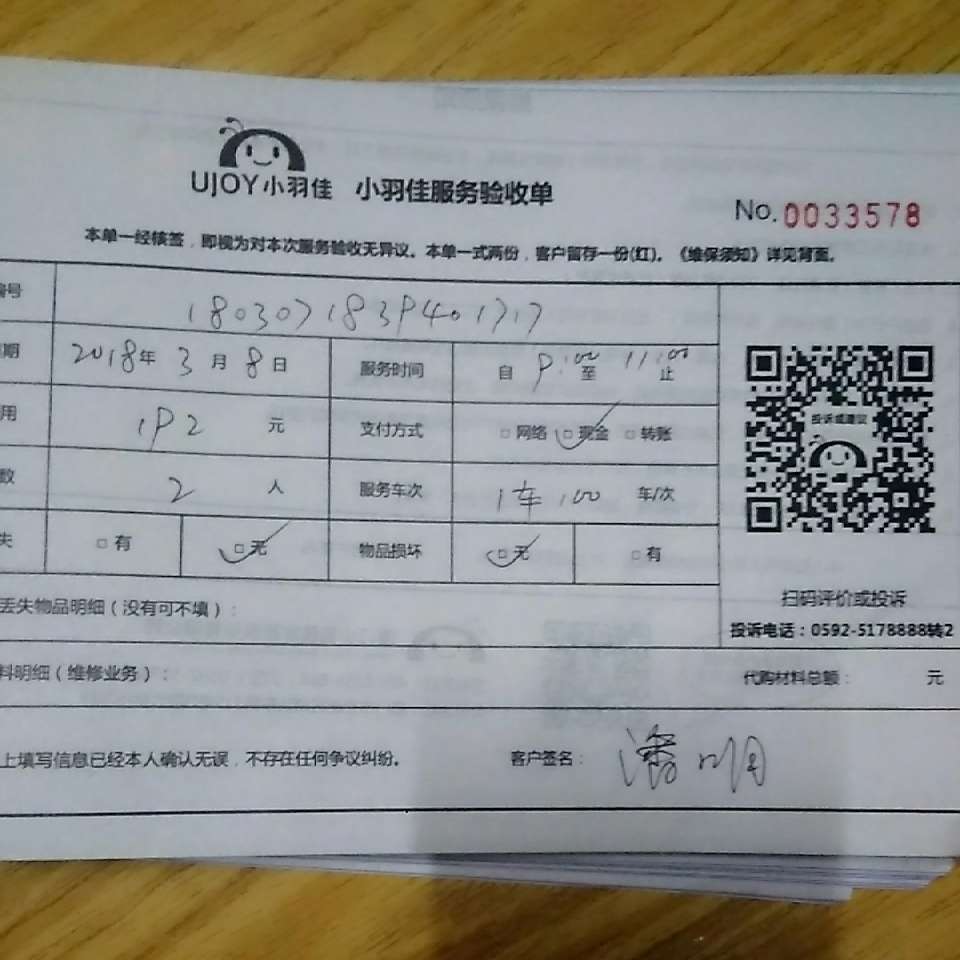 UJOY小羽佳 小羽佳服务验收单
No. 0033578
本单一经核签，即视为对本次服务验收无异议。本单一式两份，客户留存一份(红)。《维保须知》详见背面。
编号 1803071839401717
期 2018年 3月 8日 服务时间 自 9:00 至 11:00 止
用 192 元 支付方式 □网络 □现金 □转账
数 2 人 服务车次 1车100 车/次
失 □有 □无 物品损坏 □无 □有
投诉或建议
扫码评价或投诉
投诉电话：0592-5178888转2
丢失物品明细（没有可不填）：
料明细（维修业务）： 代购材料总额： 元
上填写信息已经本人确认无误，不存在任何争议纠纷。 客户签名：潘